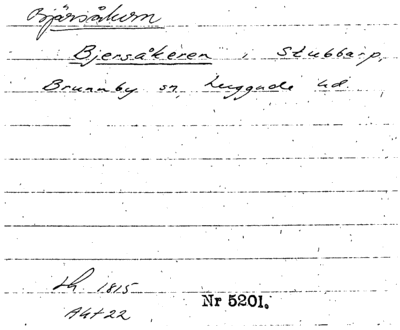 Bjärsåkern
Bjersåkeren, Stubbarp,
Brunnby sn, Luggude hd.
1815
Akt 22
Nr 5201.